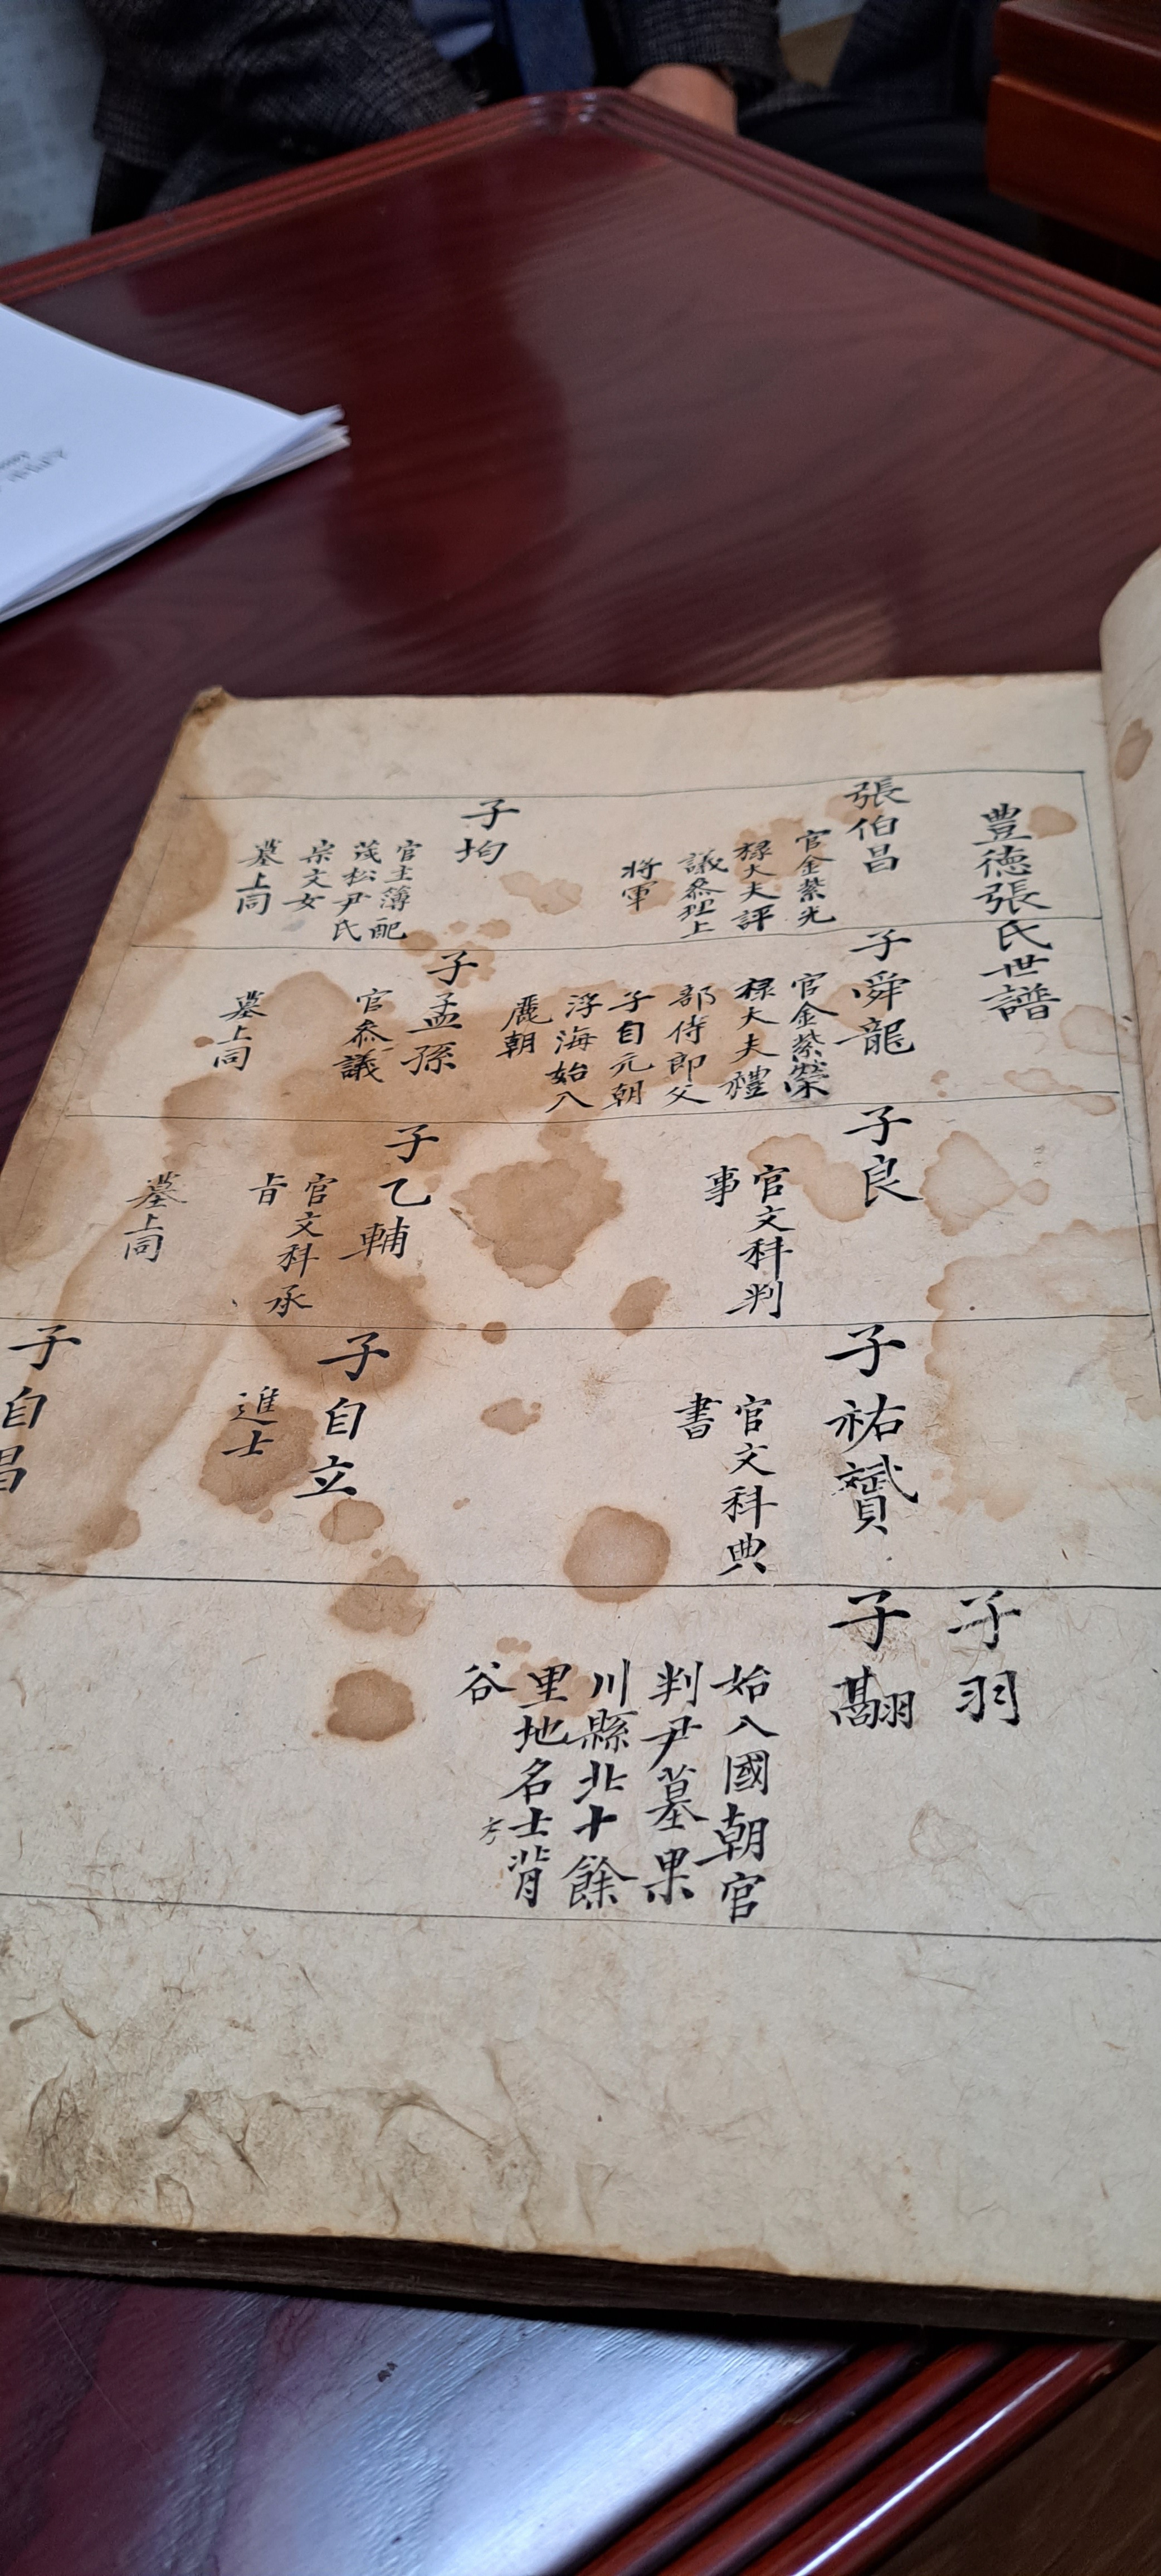 豊徳張氏世譜
張伯昌
官金紫光
禄大夫評
議叅理上
將軍
子舜龍
官金紫榮
禄大夫禮
部侍郎父
子自元朝
浮海始入
麗朝
子良
官文科判
事
子祐贇
官文科典
書
子羽
子翮
始入國朝官
判尹墓果
川縣北十餘
里地名士背
谷
子均
官主簿配
茂松尹氏
宗文女
墓上同
子孟孫
官叅議
墓上同
子乙輔
官文科承
旨
墓上同
子自立
進士
子自昌